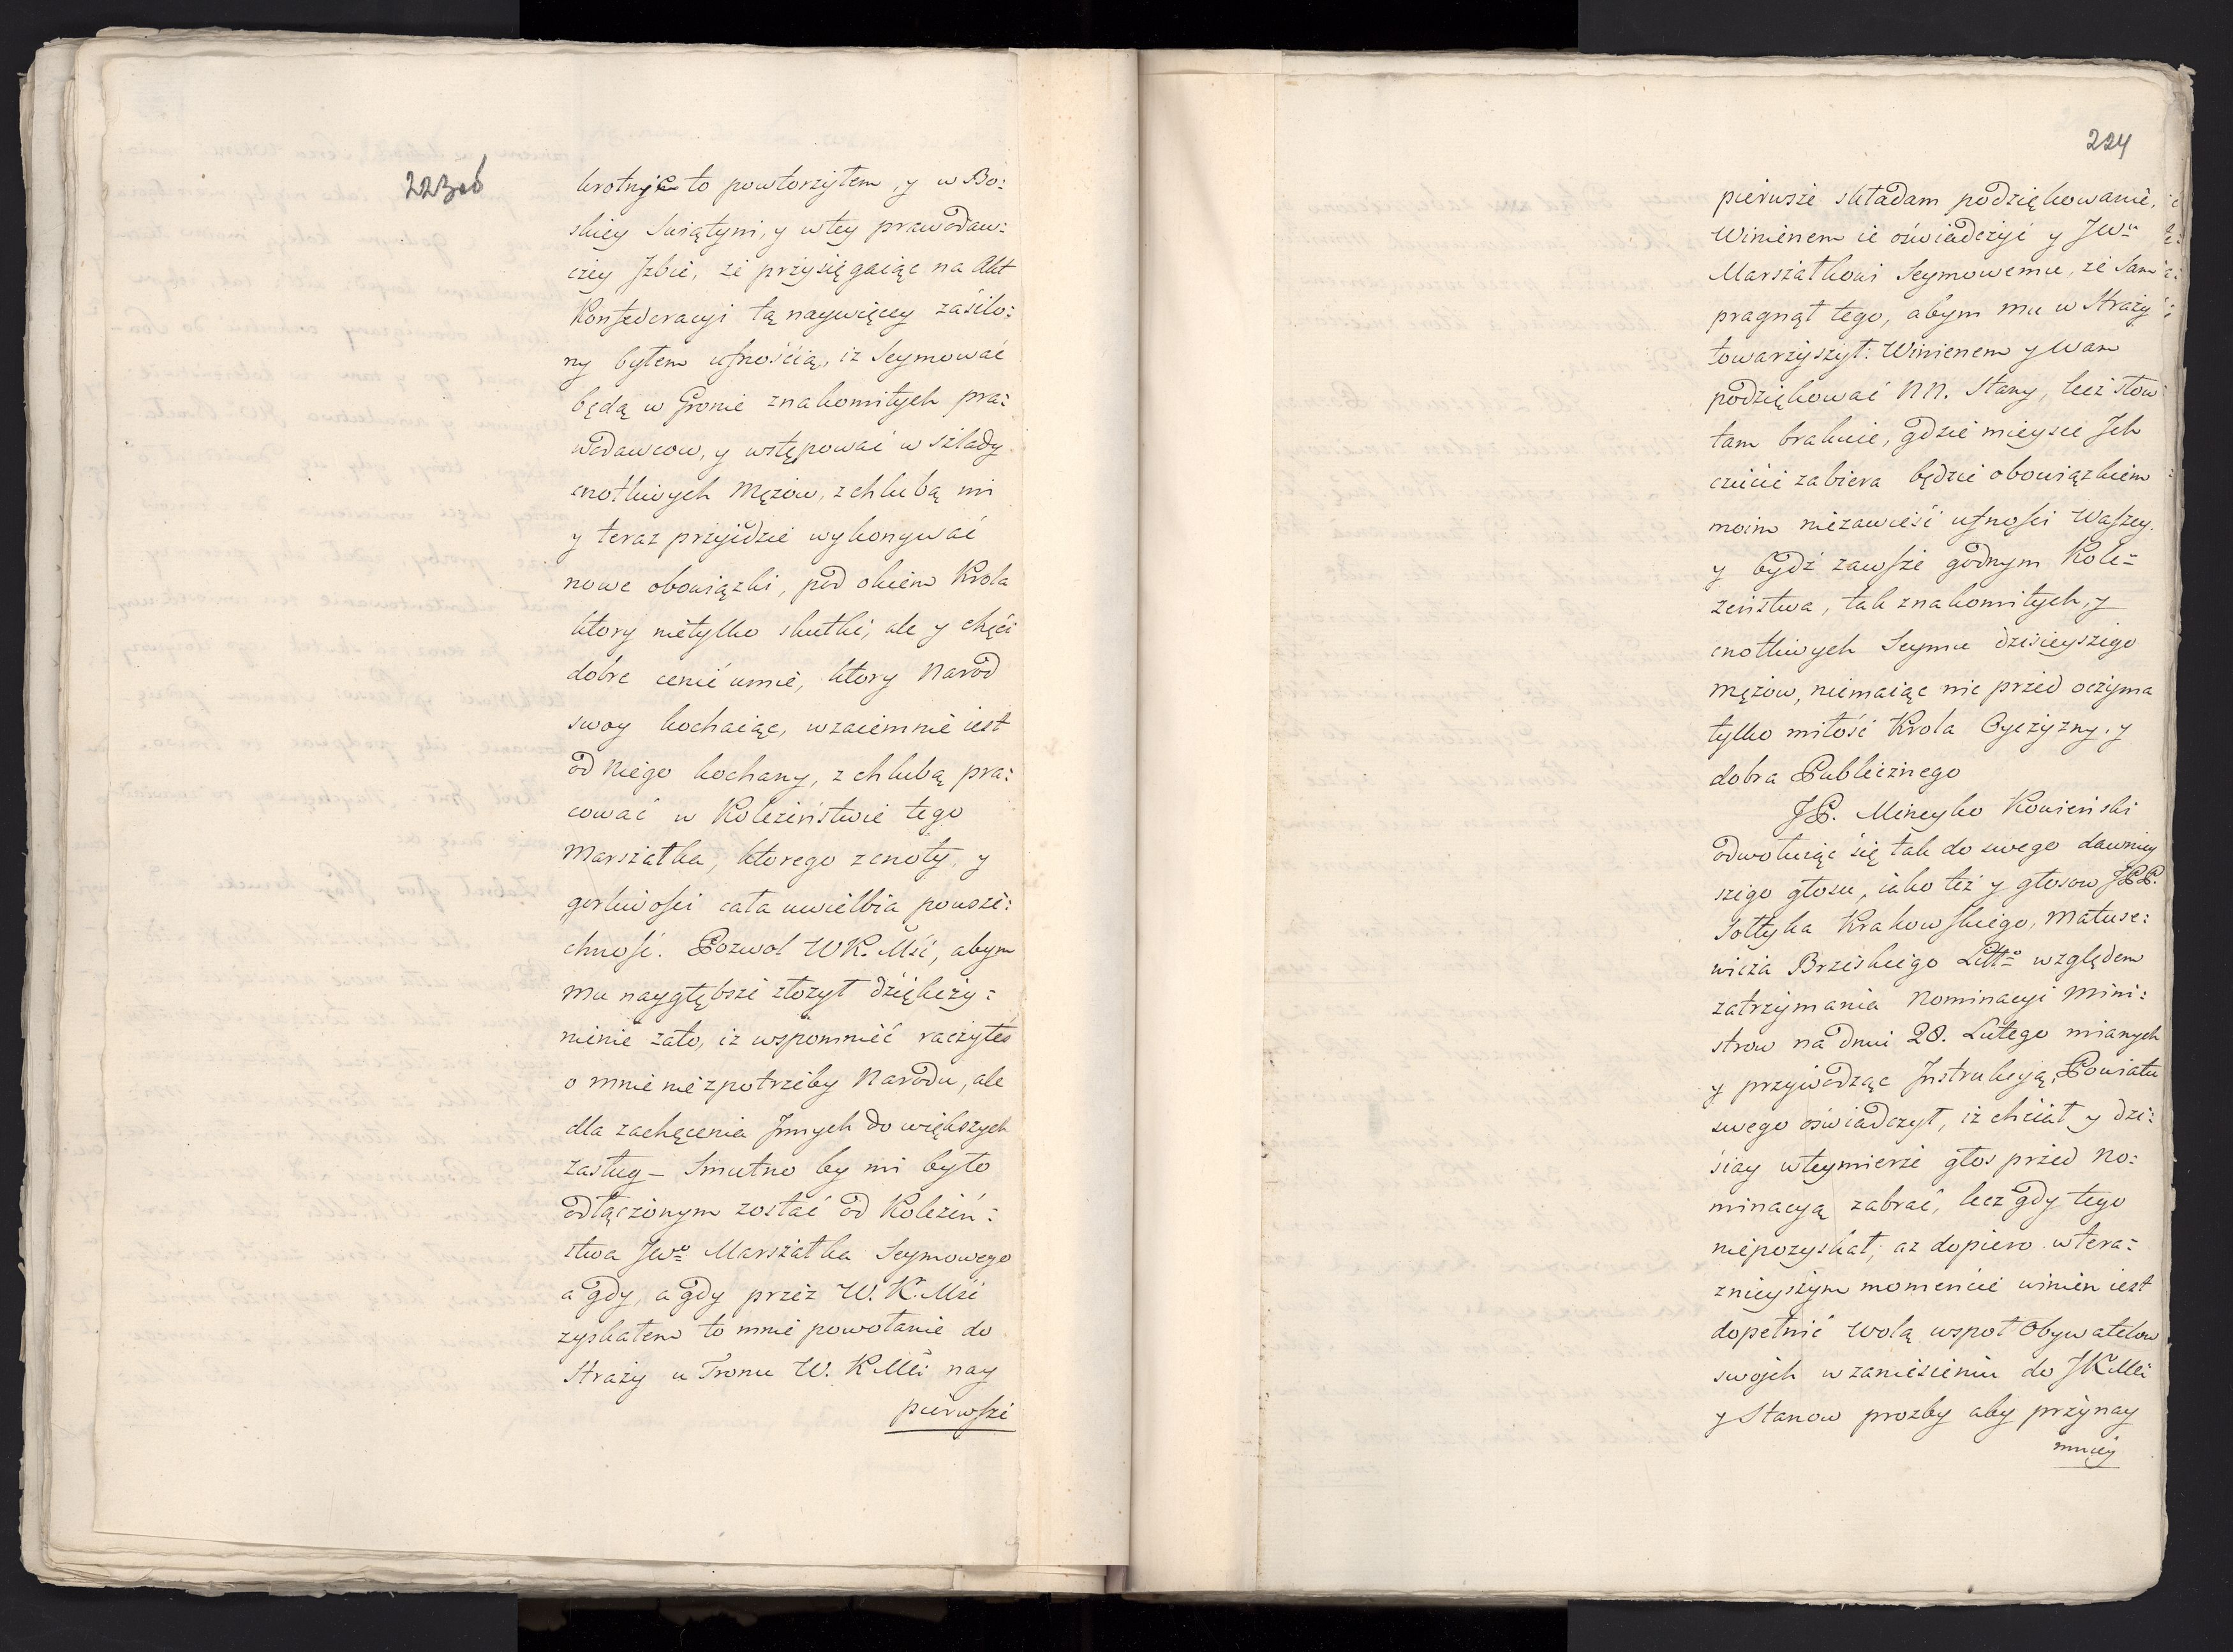 223ob
krotnie to powtorzyłem, y w Bo:
skiey Swiątyni, y wtey prawodaw:
czey Jzbie, że przysięgaiąc na Akt
Konfederacyi tą naywięcey zasilo:
ny byłem ufnością, iż Seymować
będą w Gronie znakomitych pra:
wodawcow, y wstępować w szlady
cnotliwych Mężow, z chlubą mi
y teraz przyidzie wykonywać
nowe obowiązki, pod okiem Krola
ktory nietylko skutki, ale y chęci
dobre cenić umie, ktory Narod
swoy kochaiąc, wzaiemnie iest
od Niego kochany, z chlubą pra:
cować w Koleżeństwie tego
Marszałka, ktorego z cnoty, y
gorliwości cała uwielbia powsze:
chność. Pozwol WK. Mśi, abym
mu naygłębsze złożył dziękczy:
nienie zato, iż wspomnieć raczyłeś
o mnie nie z potrzeby Narodu, ale
dla zachęcenia Jnnych do większych
zasług – Smutno by mi było
odłączonym zostać od Koleżeń:
stwa JWo Marszałka Seymowego
a gdy, a gdy przez W. K. Mśi
zyskałem to mnie powołanie do
Straży u Tronu W. K Mśi nay
pierwsze
224
pierwsze składam podziękowanie,
Winienem ie oświadczyć y JWu
Marszałkowi Seymowemu, że Sam
pragnął tego, abym mu w Straży
towarzyszył: Winienem y Wam
podziękować NN. Stany, lecz słow
tam brakuie, gdzie mieysce Jch
czucie zabiera będzie obowiązkiem
moim niezawieść ufności Waszey.
y bydź zawsze godnym Kole:
żeństwa, tak znakomitych, y
cnotliwych Seymu dzisieyszego
Mężow, niemaiąc nic przed oczyma
tylko miłość Krola Oyczyzny. y
dobra Publicznego
JP. Mineyko Kowieński
odwołuiąc się tak do swego dawniey
szego głosu, iako też y głosow JPP.
Sołtyka Krakowskiego, Matuse:
wicza Brzeskiego Litto względem
zatrzymania Nominacyi Mini:
strow na dniu 28. Lutego mianych
y przywodząc Jnstrukcyą, Powiatu
swego oświadczył, iż chciał y dzi:
siay wteymierze głos przed No:
minacyą zabrać, lecz gdy tego
niepozyskał, aż dopiero w tera:
znieyszym momencie winien iest
dopełnić wolą wspoł Obywatelow
swoich w zaniesieniu do JKMśi
y Stanow prozby aby przynay
mniey